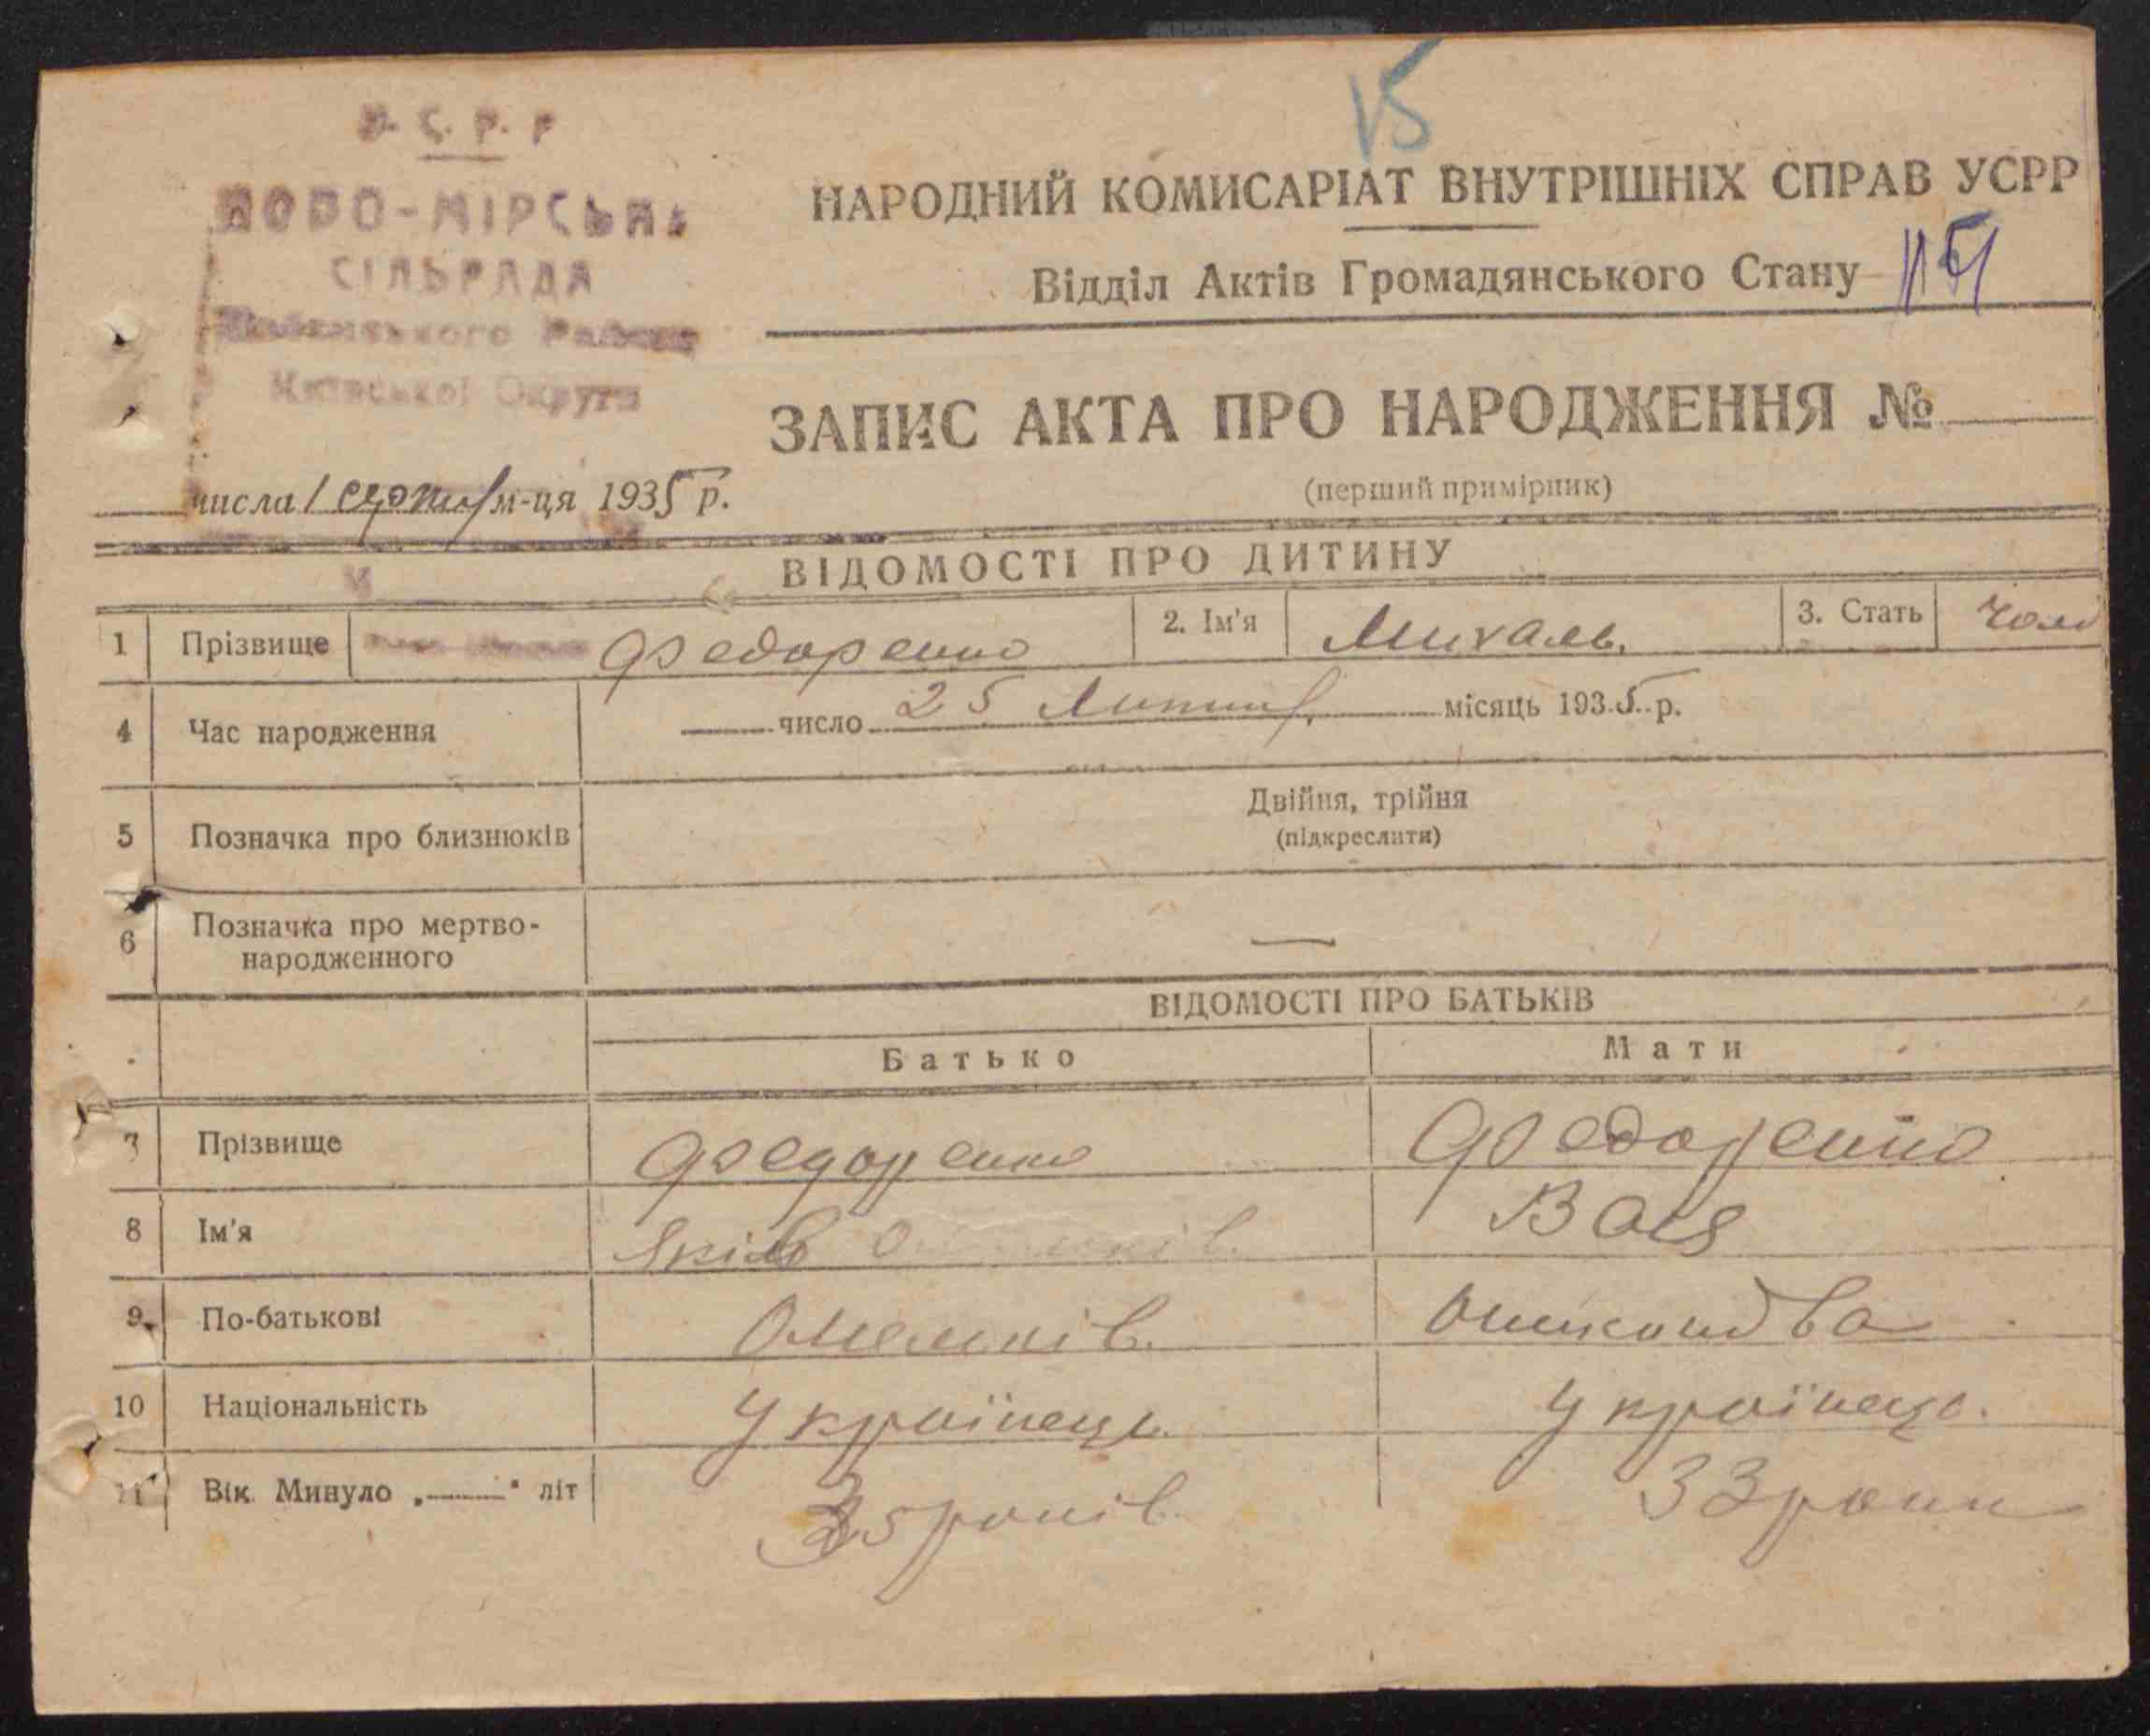 15
У.С.Р.Р
НОВО-МІРСЬКА
СІЛЬРАДА
Району
Київської Округи
НАРОДНИЙ КОМИСАРІАТ ВНУТРІШНІХ СПРАВ УСРР
Відділ Актів Громадянського Стану
ЗАПИС АКТА ПРО НАРОДЖЕННЯ №
(перший примірник)
числа 1 серпня м-ця 1935 р.
ВІДОМОСТІ ПРО ДИТИНУ
1 Прізвище Федоренко 2. Ім'я Михаль. 3. Стать Чолі
4 Час народження число 25 Липня місяць 1935 р.
5 Позначка про близнюків Двійня, трійня
(підкреслити)
6 Позначка про мертво-
народженного —
ВІДОМОСТІ ПРО БАТЬКІВ
Батько Мати
7 Прізвище Федоренко Федоренко
8 Ім'я Яків
9 По-батькові Омельків.
10 Національність Українець. Українець.
11 Вік. Минуло „ " літ 35 років. 33 роки